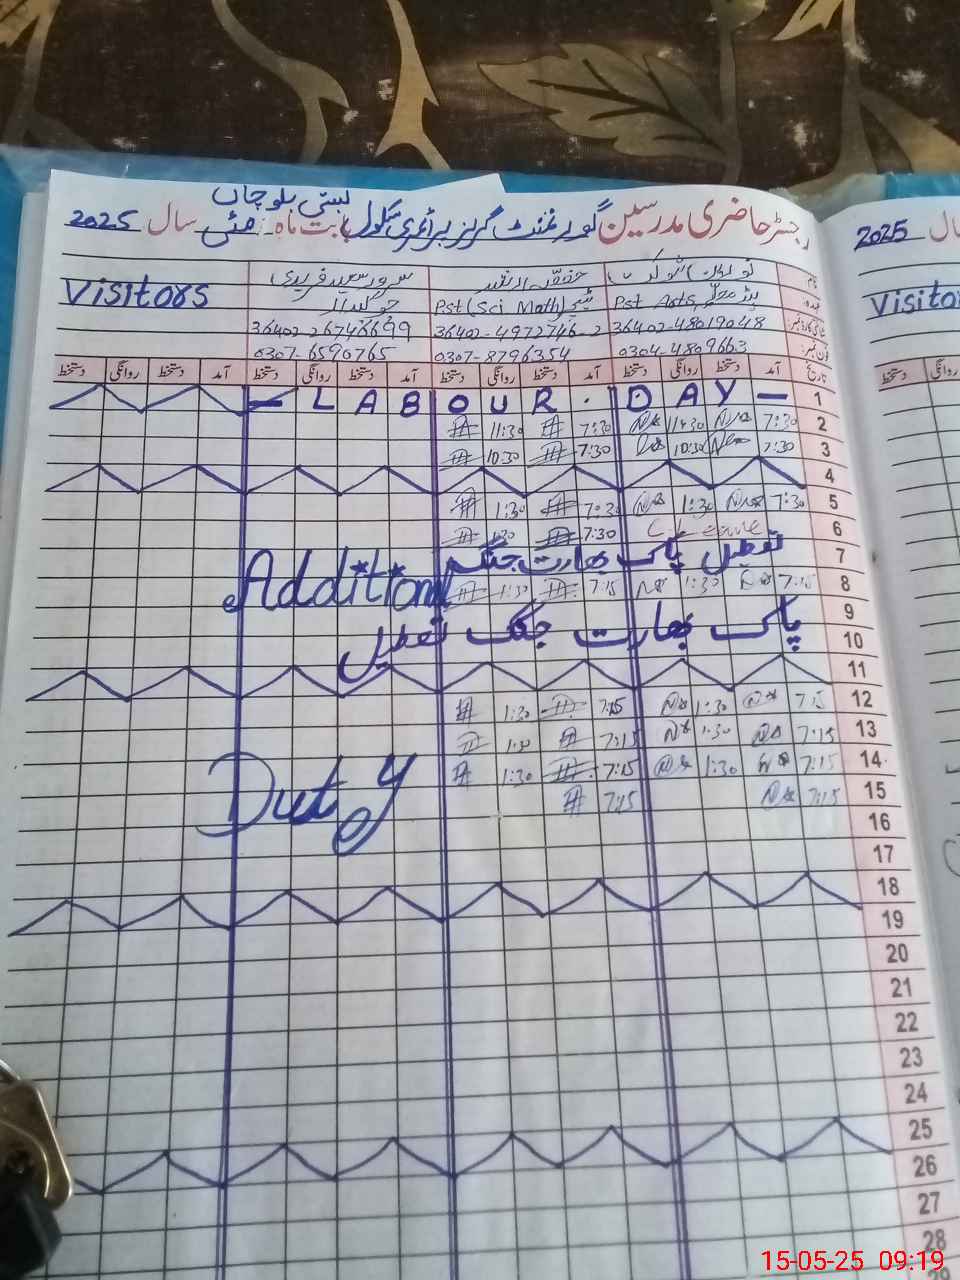 بستی بلوچاں
رجسٹر حاضری مدرسین گورنمنٹ گرلز پرائمری سکول بابت ماہ مئی سال 2025
2025 سال
نام
عہدہ
شناختی کارڈ نمبر
فون نمبر
Visitors
سرور سعید فریدی
چوکیدار
Pst (Sci Math) ٹیچر
Pst Arts
36402-48019048 36402-4972746-2 36402 26746699
0304-4809663 0307-8796354 0307-6590765
تاریخ آمد دستخط روانگی دستخط آمد دستخط روانگی دستخط آمد دستخط روانگی دستخط آمد دستخط روانگی دستخط
دستخط روانگی
Visito
1 — LABOUR. DAY —
2 7:30 11:30 7:30 11:30
3 7:30 10:30 7:30 10:30
4
5 7:30 1:30 7:30 1:30
6 C-Leave 7:30 1:30
7 تعطیل پاک بھارت جنگ
8 7:15 1:30 7:15 1:30
Additional
9
پاک بھارت جنگ تعطیل
10
11
12 7:15 1:30 7:15 1:30
13 7:15 1:30 7:15 1:30
14 7:15 1:30 7:15 1:30
15 7:15 7:15
Duty
16
17
18
19
20
21
22
23
24
25
26
27
28
29
15-05-25 09:19